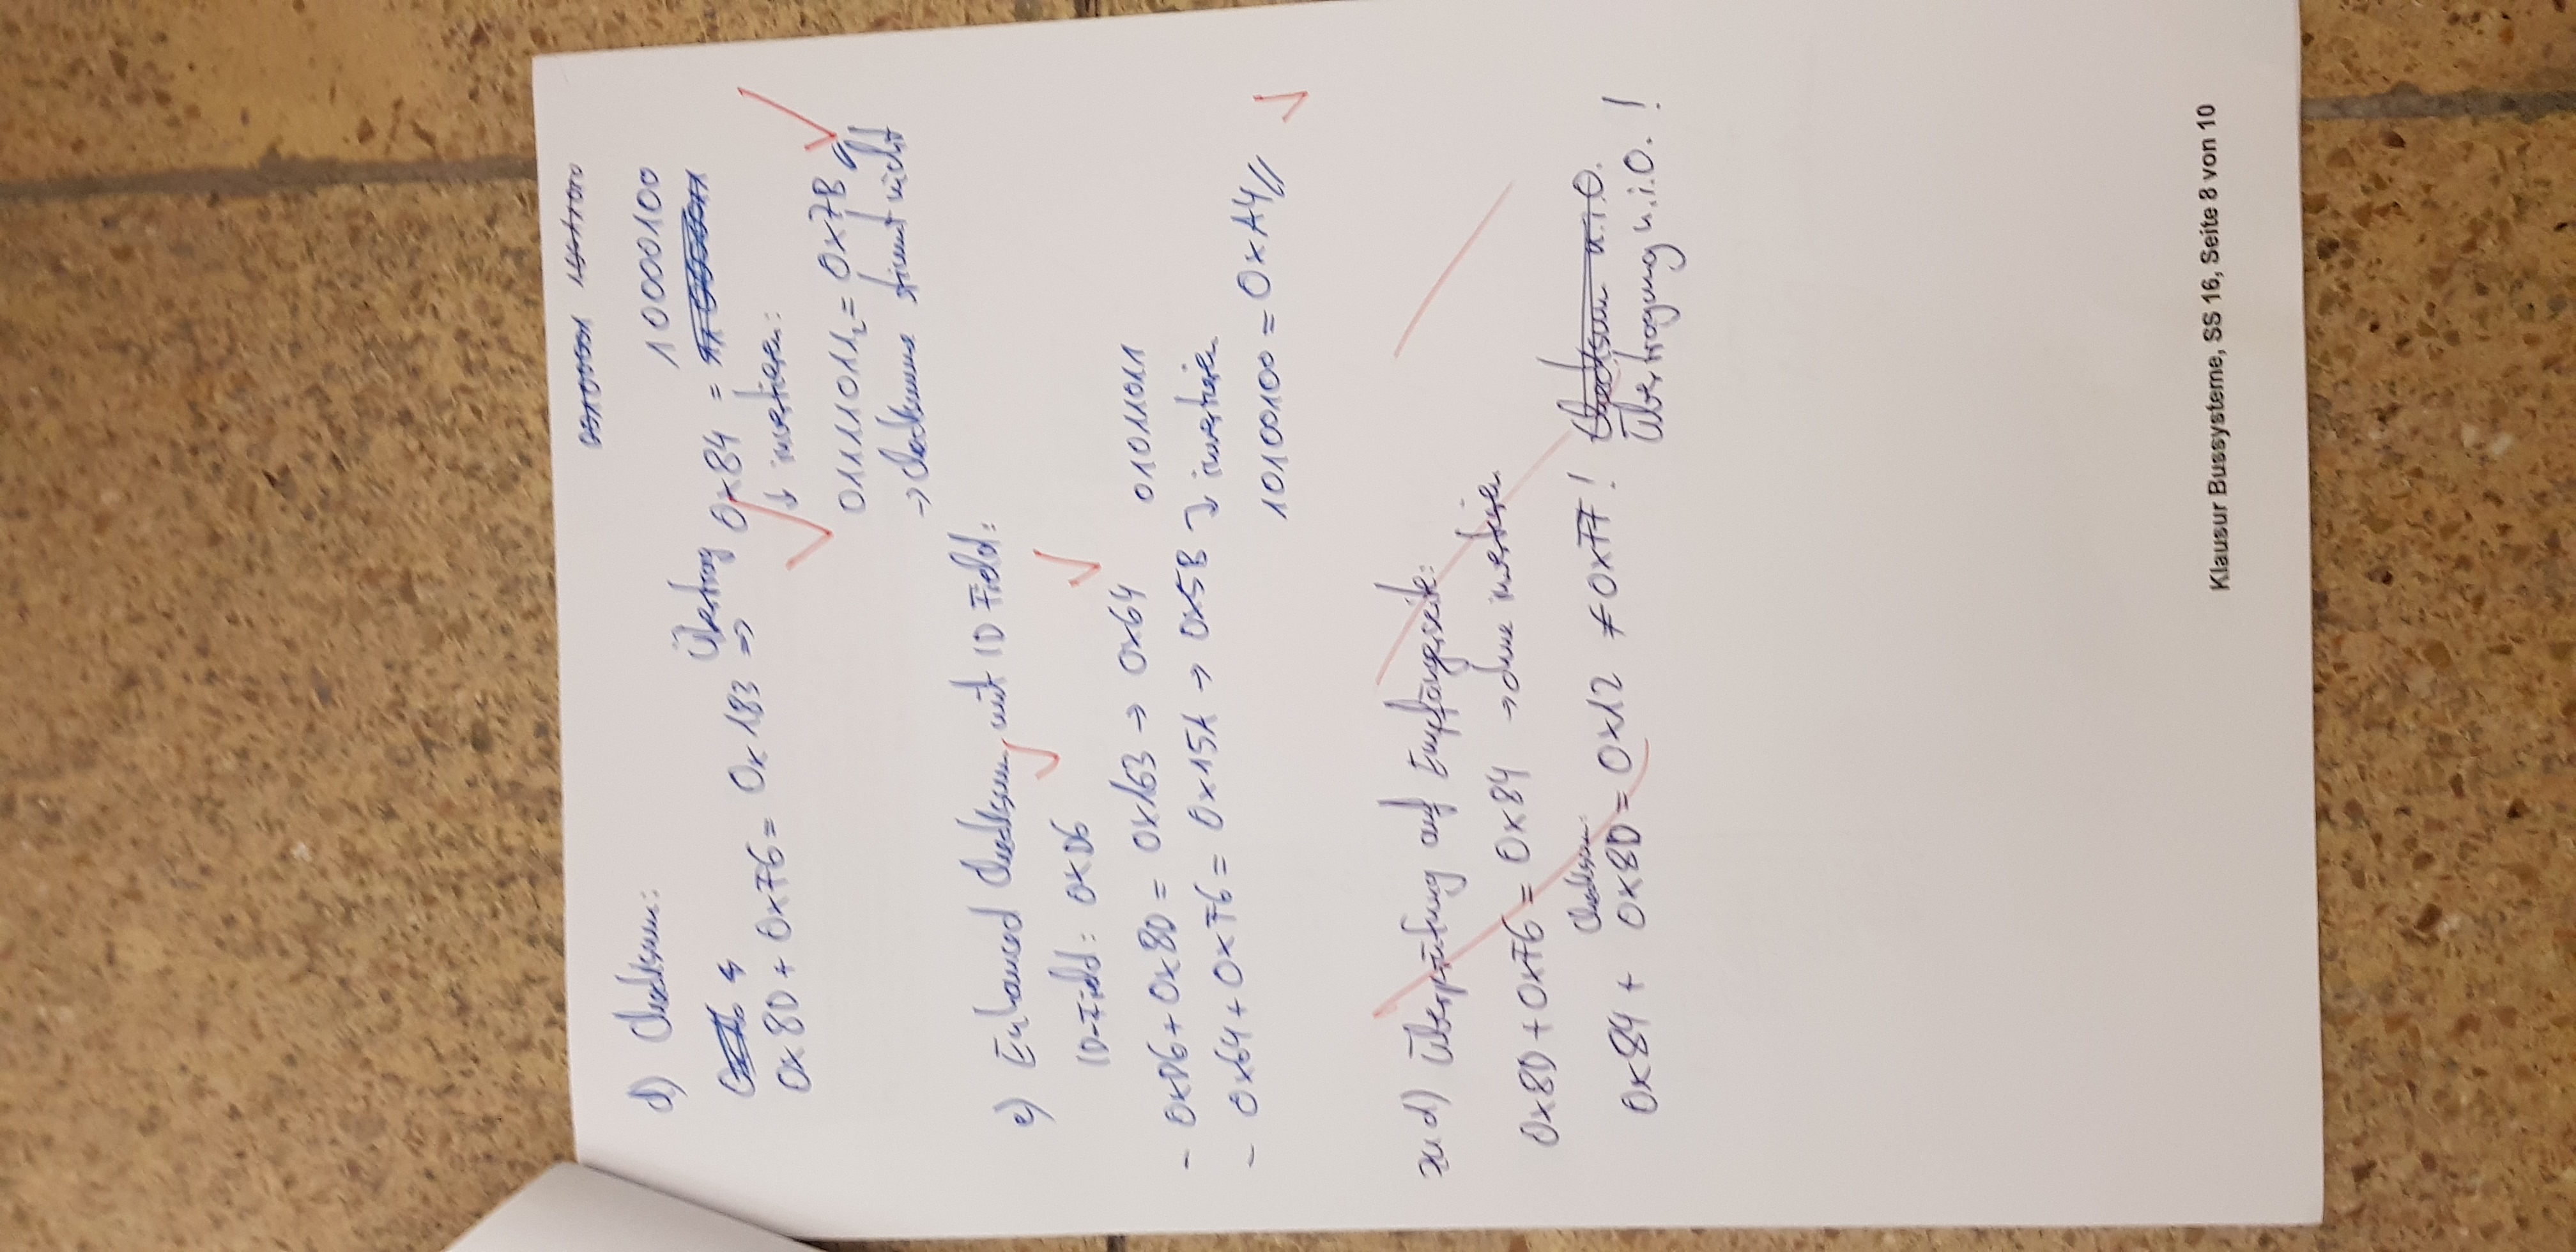 d) Checksum:
10000100
0x8D + 0xF6 = 0x183 Übertrag => 0x84 =
↓ invertieren:
01111011₂ = 0x7B
-> Checksumme stimmt nicht
e) Enhanced Checksum, mit ID Field:
ID-Field: 0xD6
- 0xD6 + 0x8D = 0x163 -> 0x64
01011011
- 0x64 + 0xF6 = 0x15A -> 0x5B ↓ invertieren
10100100 = 0xA4 //
zu d) Überprüfung auf Empfängerseite:
0x8D + 0xF6 = 0x84 -> ohne invertieren
Checksum:
0x84 + 0x8D = 0x12 ≠ 0xFF! Checksum n.i.O.
Übertragung n.i.O. !
Klausur Bussysteme, SS 16, Seite 8 von 10